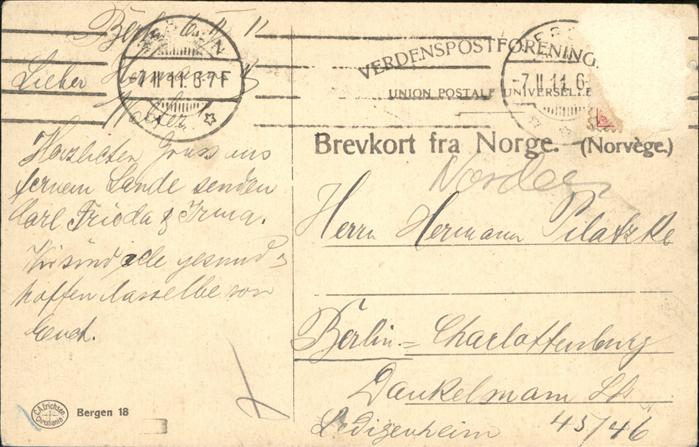 Bergen 6 II 11
Lieber Hermann &
Walter,
Herzlichen Gruss aus
fernem Lande senden
Karl Frieda & Irma.
Wir sind alle gesund &
hoffen dasselbe von
Euch.
BERGEN
-7 II 11. 6-7 F
VERDENSPOSTFORENING.
UNION POSTALE UNIVERSELLE
-7. II. 11. 6-
Brevkort fra Norge. (Norvège.)
Norden
Herrn Hermann Pilatzke
Berlin-Charlottenburg
Dankelmann Str.
Ledigenheim 45/46
C.A. Erichsen
Christiania
Bergen 18